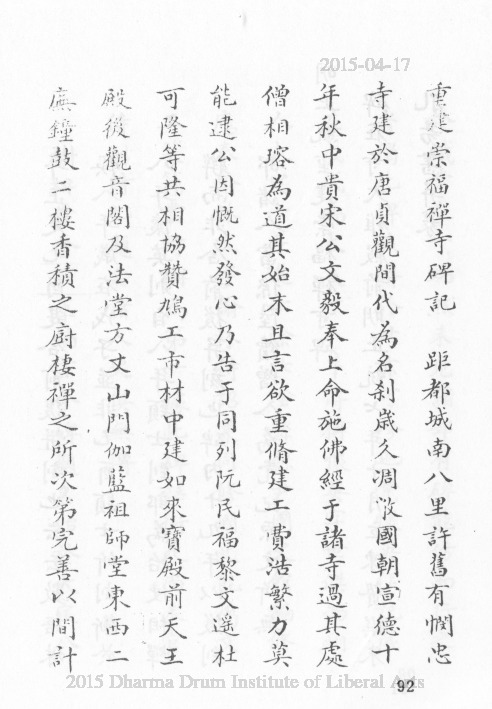 2015-04-17
重建崇福禪寺碑記　距都城南八里許舊有憫忠
寺建於唐貞觀間代為名刹歲久凋敝國朝宣德十
年秋中貴宋公文毅奉上命施佛經于諸寺過其處
僧相瑢為道其始末且言欲重脩建工費浩繁力莫
能逮公因慨然發心乃告于同列阮民福黎文暹杜
可隆等共相協贊鳩工市材中建如來寶殿前天王
殿後觀音閣及法堂方丈山門伽藍祖師堂東西二
廡鐘鼓二樓香積之廚棲禪之所次第完善以間計
2015 Dharma Drum Institute of Liberal Arts
92